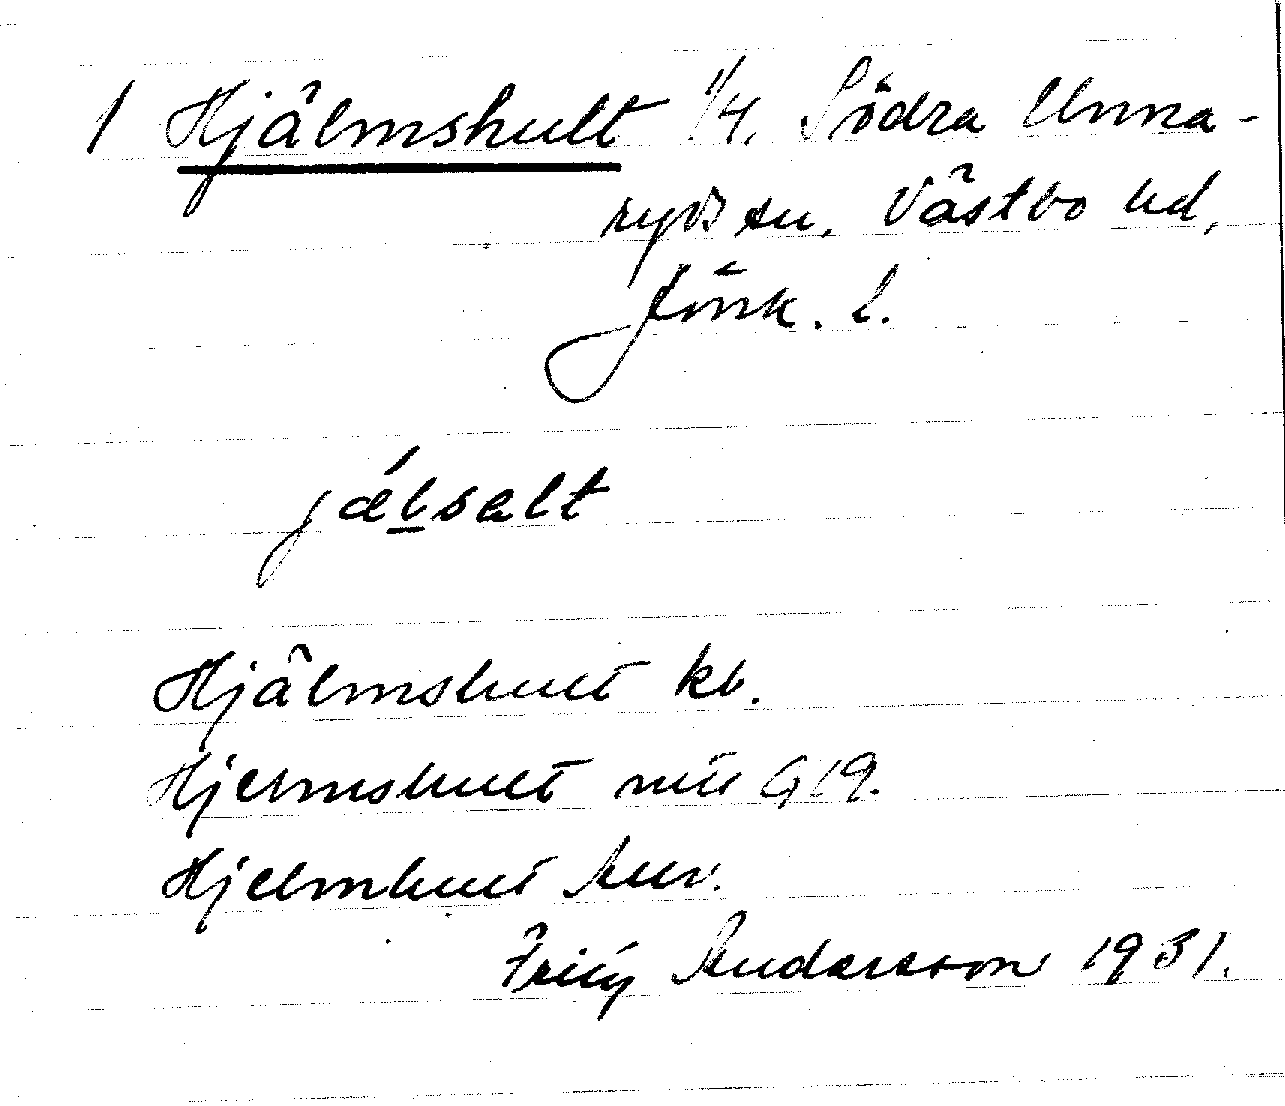 1 Hjälmshult 1/4. Södra Unna-
ryds sn. Västbo hd,
Jönk. l.
jálsalt
Hjälmshult kb.
Hjelmshult 1919.
Hjelmhult
Andersson 1931.